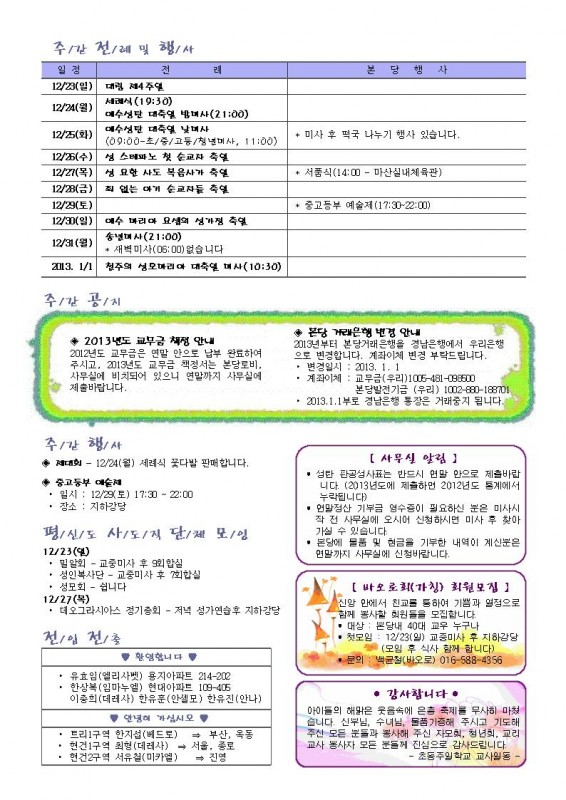 주/간 전/례 및 행/사
일 정 전 례 본 당 행 사
12/23(일) 대림 제4주일
12/24(월) 세례식(19:30)
예수성탄 대축일 밤미사(21:00)
12/25(화) 예수성탄 대축일 낮미사
(09:00-초/중/고등/청년미사, 11:00) * 미사 후 떡국 나누기 행사 있습니다.
12/26(수) 성 스테파노 첫 순교자 축일
12/27(목) 성 요한 사도 복음사가 축일 * 서품식(14:00 - 마산실내체육관)
12/28(금) 죄 없는 아기 순교자들 축일
12/29(토) * 중고등부 예술제(17:30~22:00)
12/30(일) 예수 마리아 요셉의 성가정 축일
12/31(월) 송년미사(21:00)
* 새벽미사(06:00)없습니다
2013. 1/1 천주의 성모마리아 대축일 미사(10:30)
주/간 공/지
◈ 2013년도 교무금 책정 안내
2012년도 교무금은 연말 안으로 납부 완료하여
주시고, 2013년도 교무금 책정서는 본당로비,
사무실에 비치되어 있으니 연말까지 사무실에
제출바랍니다.
◈ 본당 거래은행 변경 안내
2013년부터 본당거래은행을 경남은행에서 우리은행
으로 변경합니다. 계좌이체 변경 부탁드립니다.
• 변경일시 : 2013. 1. 1
• 계좌이체 : 교무금(우리)1005-481-098500
본당발전기금 (우리) 1002-880-188701
• 2013.1.1부로 경남은행 통장은 거래중지 됩니다.
주/간 행/사
◈ 제대회 - 12/24(월) 세례식 꽃다발 판매합니다.
◈ 중고등부 예술제
• 일시 : 12/29(토) 17:30 ~ 22:00
• 장소 : 지하강당
평/신/도 사/도/직 단/체 모/임
12/23(일)
• 밀알회 - 교중미사 후 9회합실
• 성인복사단 - 교중미사 후 7회합실
• 성모회 - 쉽니다
12/27(목)
• 데오그라시아스 정기총회 - 저녁 성가연습후 지하강당
전/입 전/출
♥ 환영합니다 ♥
• 유효임(엘리사벳) 용지아파트 214-202
• 한상복(임마누엘) 현대아파트 109-405
이충희(데레사) 한유훈(안셀모) 한유진(안나)
♥ 안녕히 가십시오 ♥
• 트리1구역 한지섭(베드로) ⇒ 부산, 옥동
• 현건1구역 최형(데레사) ⇒ 서울, 종로
• 현건2구역 서유철(미카엘) ⇒ 진영
[ 사무실 알림 ]
• 성탄 판공성사표는 반드시 연말 안으로 제출바랍
니다. (2013년도에 제출하면 2012년도 통계에서
누락됩니다)
• 연말정산 기부금 영수증이 필요하신 분은 미사시
작 전 사무실에 오시어 신청하시면 미사 후 찾아
가실 수 있습니다.
• 본당에 물품 및 현금을 기부한 내역이 계신분은
연말까지 사무실에 신청바랍니다.
[ 바오로회(가칭) 회원모집 ]
신앙 안에서 친교를 통하여 기쁨과 열정으로
함께 봉사할 회원들을 모집합니다.
• 대상 : 본당내 40대 교우 누구나
• 첫모임 : 12/23(일) 교중미사 후 지하강당
(모임 후 식사 함께 합니다)
• 문의 : 백균철(바오로) 016-588-4356
• 감사합니다 •
아이들의 해맑은 웃음속에 은총 축제를 무사히 마쳤
습니다. 신부님, 수녀님, 물품기증해 주시고 기도해
주신 모든 분들과 봉사해 주신 자모회, 청년회, 교리
교사 봉사자 모든 분들께 진심으로 감사드립니다.
- 초동주일학교 교사일동 -